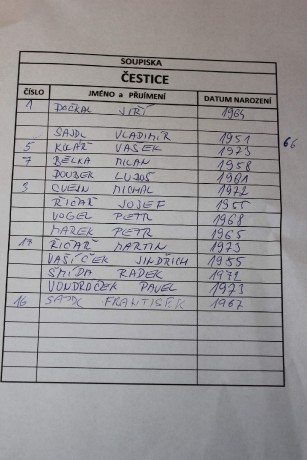 SOUPISKA
ČESTICE
ČÍSLO JMÉNO a PŘIJÍMENÍ DATUM NAROZENÍ
1 DOČKAL JIŘÍ 1964
SAJDL VLADIMÍR 1951 66
5 KOLÁŘ VAŠEK 1973
7 BĚLKA MILAN 1958
DOUBEK LUBOŠ 1961
MICHAL 1972
ŘIČAŘ JOSEF 1955
VOGEL PETR 1968
MAREK PETR 1965
17 ŘIČAŘ MARTIN 1973
VAŠÍČEK JINDŘICH 1955
ŠMÍDA RADEK 1972
VONDROČEK PAVEL 1973
16 SAJDL FRANTIŠEK 1967